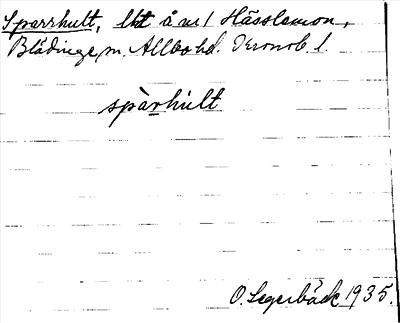 Sparrhult, lht å m 1 Hässlemon,
Blädinge, m. Allbo hd. Kronob. l.
spàrhult
O. Segerbäck 1935.